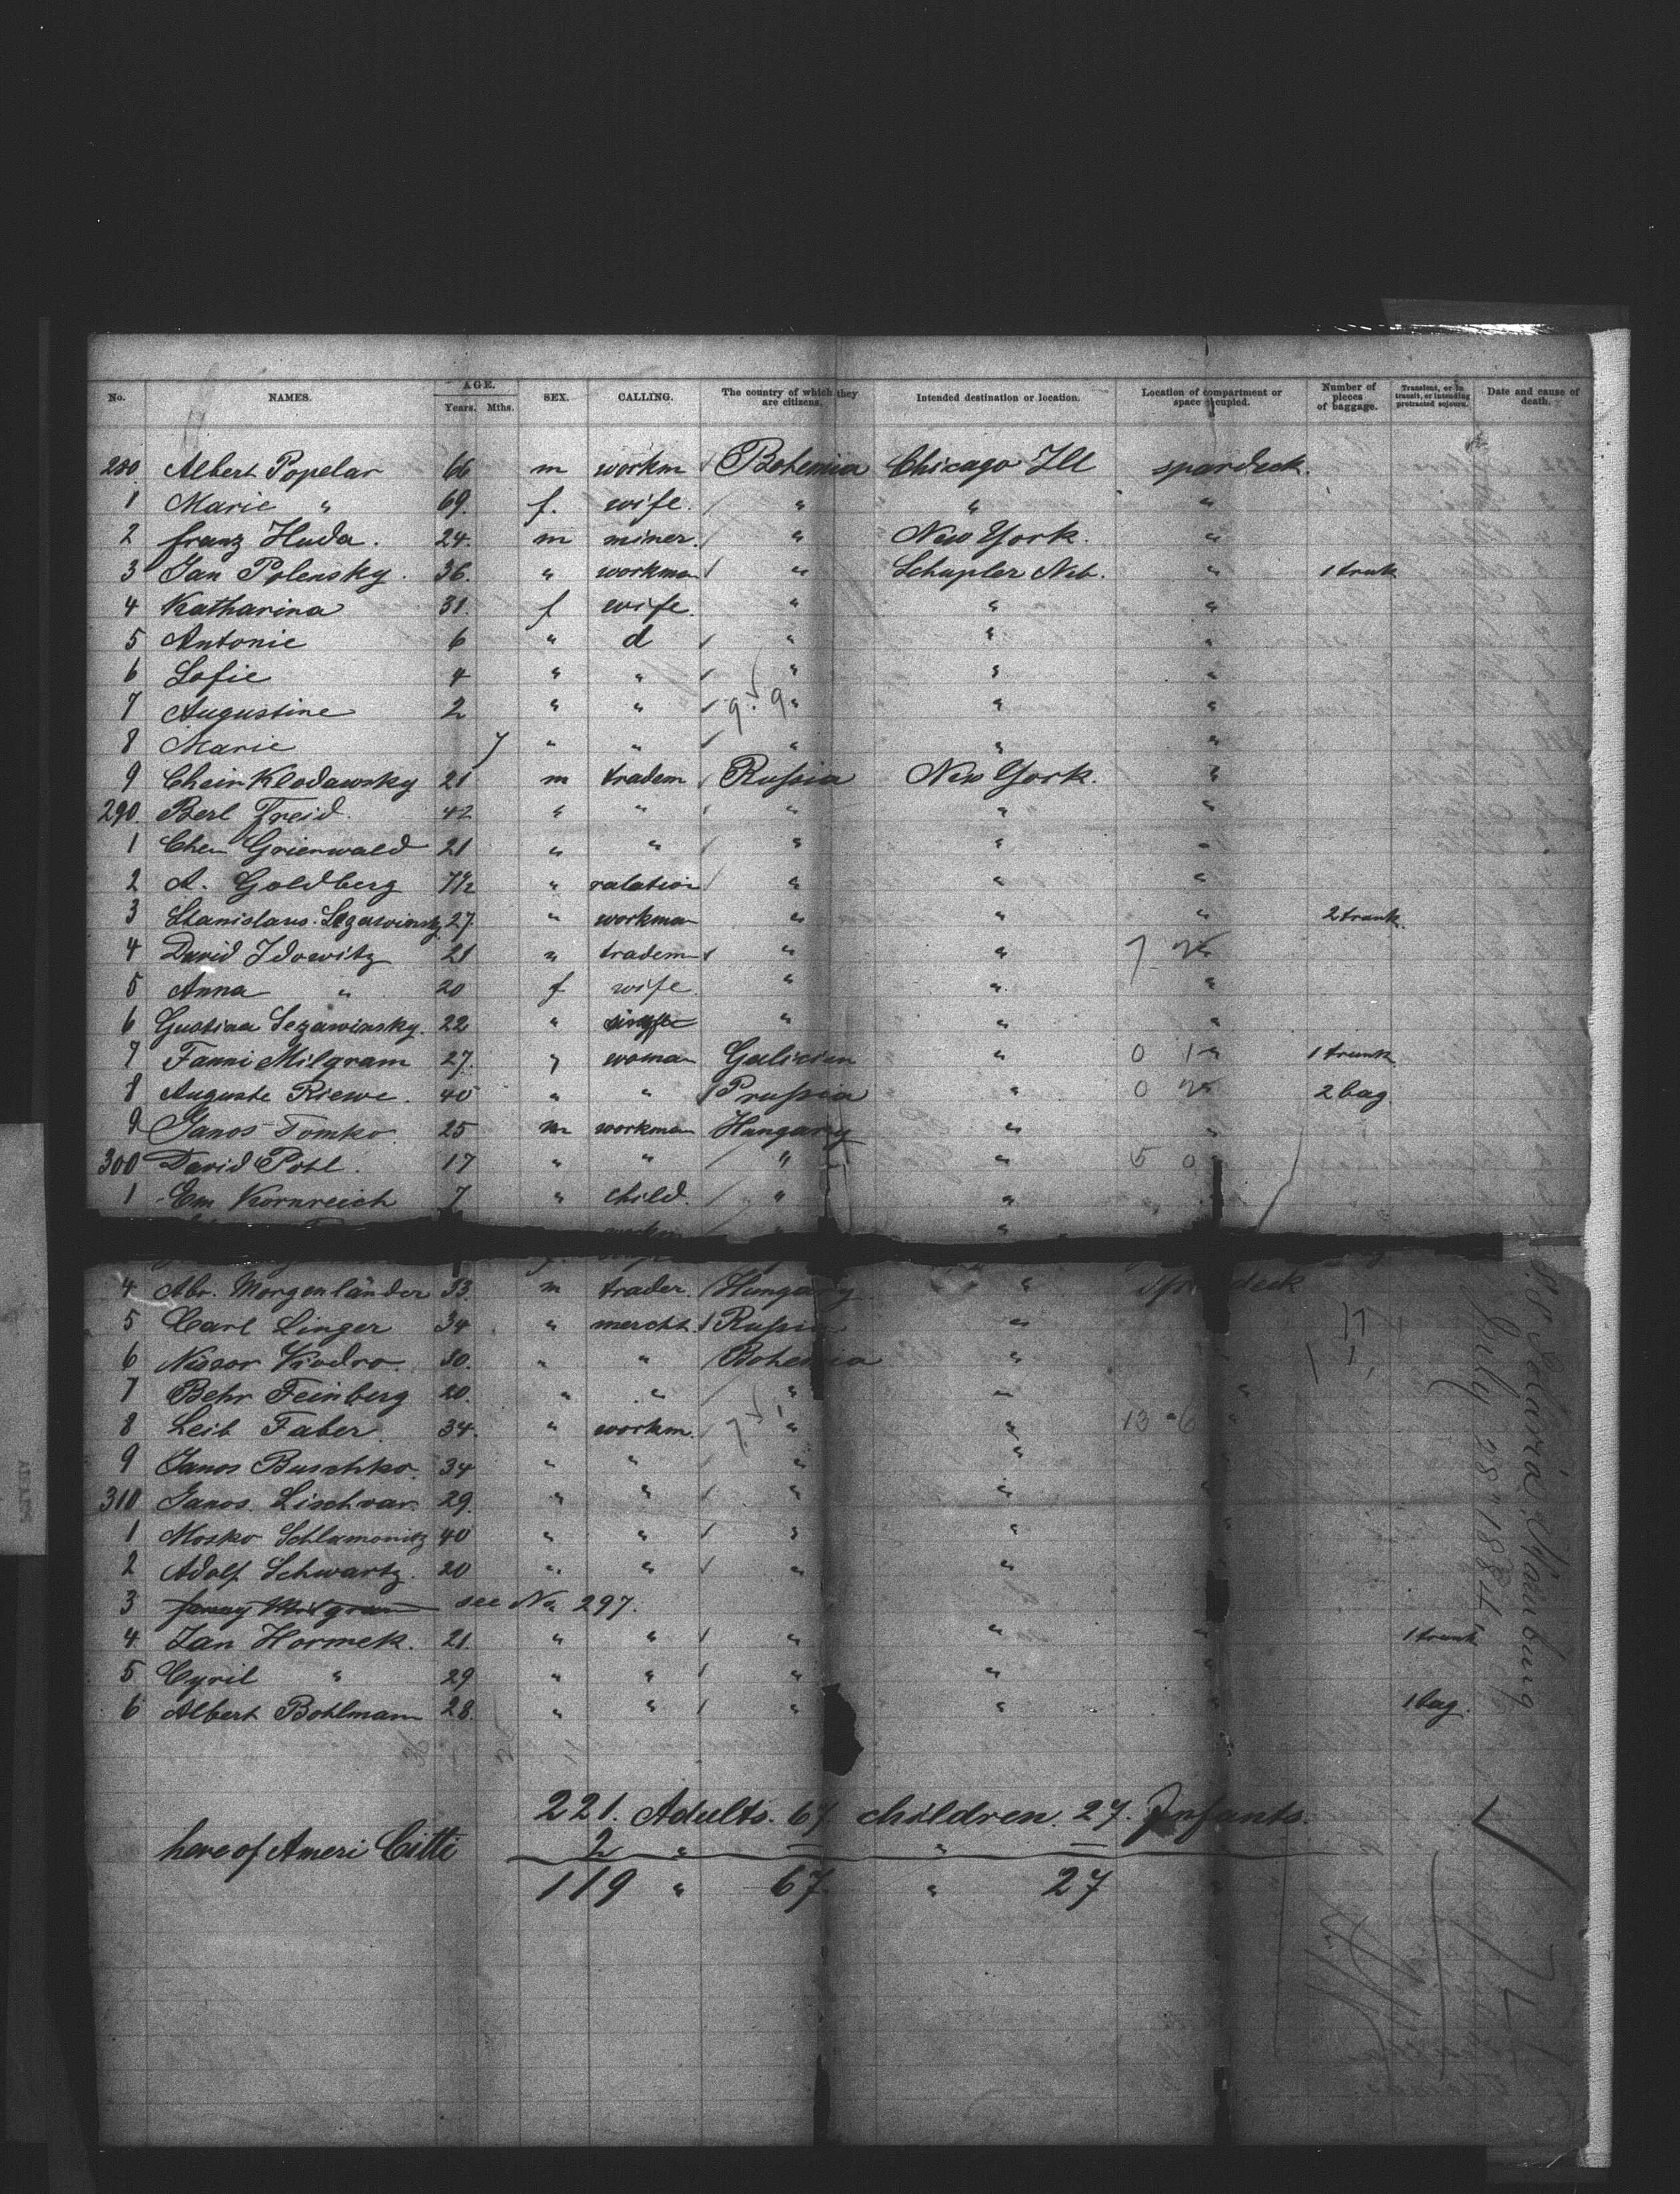 No. NAMES. AGE. Years. Mths. SEX. CALLING. The country of which they are citizens. Intended destination or location. Location of compartment or space occupied. Number of pieces of baggage. Transient, or in transit, or intending protracted sojourn. Date and cause of death.
280 Albert Popelar 66 m workm Bohemia Chicago Ill spardeck.
1 Marie " 69. f. wife. " " "
2 franz Huda. 24. m miner. " New York. "
3 Jan Polensky. 36. " workman " Schupler Neb. " 1 trunk
4 Katharina 31. f wife. " " "
5 Antonie 6 " d " " "
6 Sofie 4 " " " " "
7 Augustine 2 " " " " "
8 Marie 7 " " " " "
9 Chain Klodawsky 21 m tradem Russia New York. "
290. Berl Freid. 42 " " " " "
1 Chen Grienwald 21 " " " " "
2 A. Goldberg 7½ " ralation " " "
3 Stanislaus Sezawinsky 27. " workman " " " 2 trunk.
4 David Idowitz 21 " tradem " "
5 Anna " 20 f wife. " " "
6 Gustina Sezawinsky. 22 " " " "
7 Fanni Milgram 27. " woman Galicien " 0 1 1 trunk
8 Auguste Riewe. 40 " " Prussia " 0 2 bag.
9 Janos Tomko 25 m workman Hungary " "
300 David Pohl. 17 " " " " 5 0
1 Em Kornreich 7 " child. " "
4 Abr. Morgenländer 33. m trader. Hungary " deck
5 Carl Linger 34 " mercht. Russia "
6 Viodro 30. " " Bohemia "
7 Behr Feinberg 20. " " " " "
8 Leib Faber. 34. " workm. " " 13 6 "
9 Janos Buschko. 34 " " " "
310 Janos. Lischvar. 29. " " " "
1 Mosko Schlamonitz 40 " " " "
2 Adolf Schwartz. 20 " " " "
3 fanny Milgram see No 297.
4 Jan Hormek. 21. " " " " " 1 trunk
5 Cyril " 29 " " " " "
6 Albert Bohlmann 28. " " " " " 1 bag.
221. Adults. 67 children. 27. Infants.
here of Ameri Citti 2 " — " =
119 " 67 " 27
July 28" 1884.
Hamburg